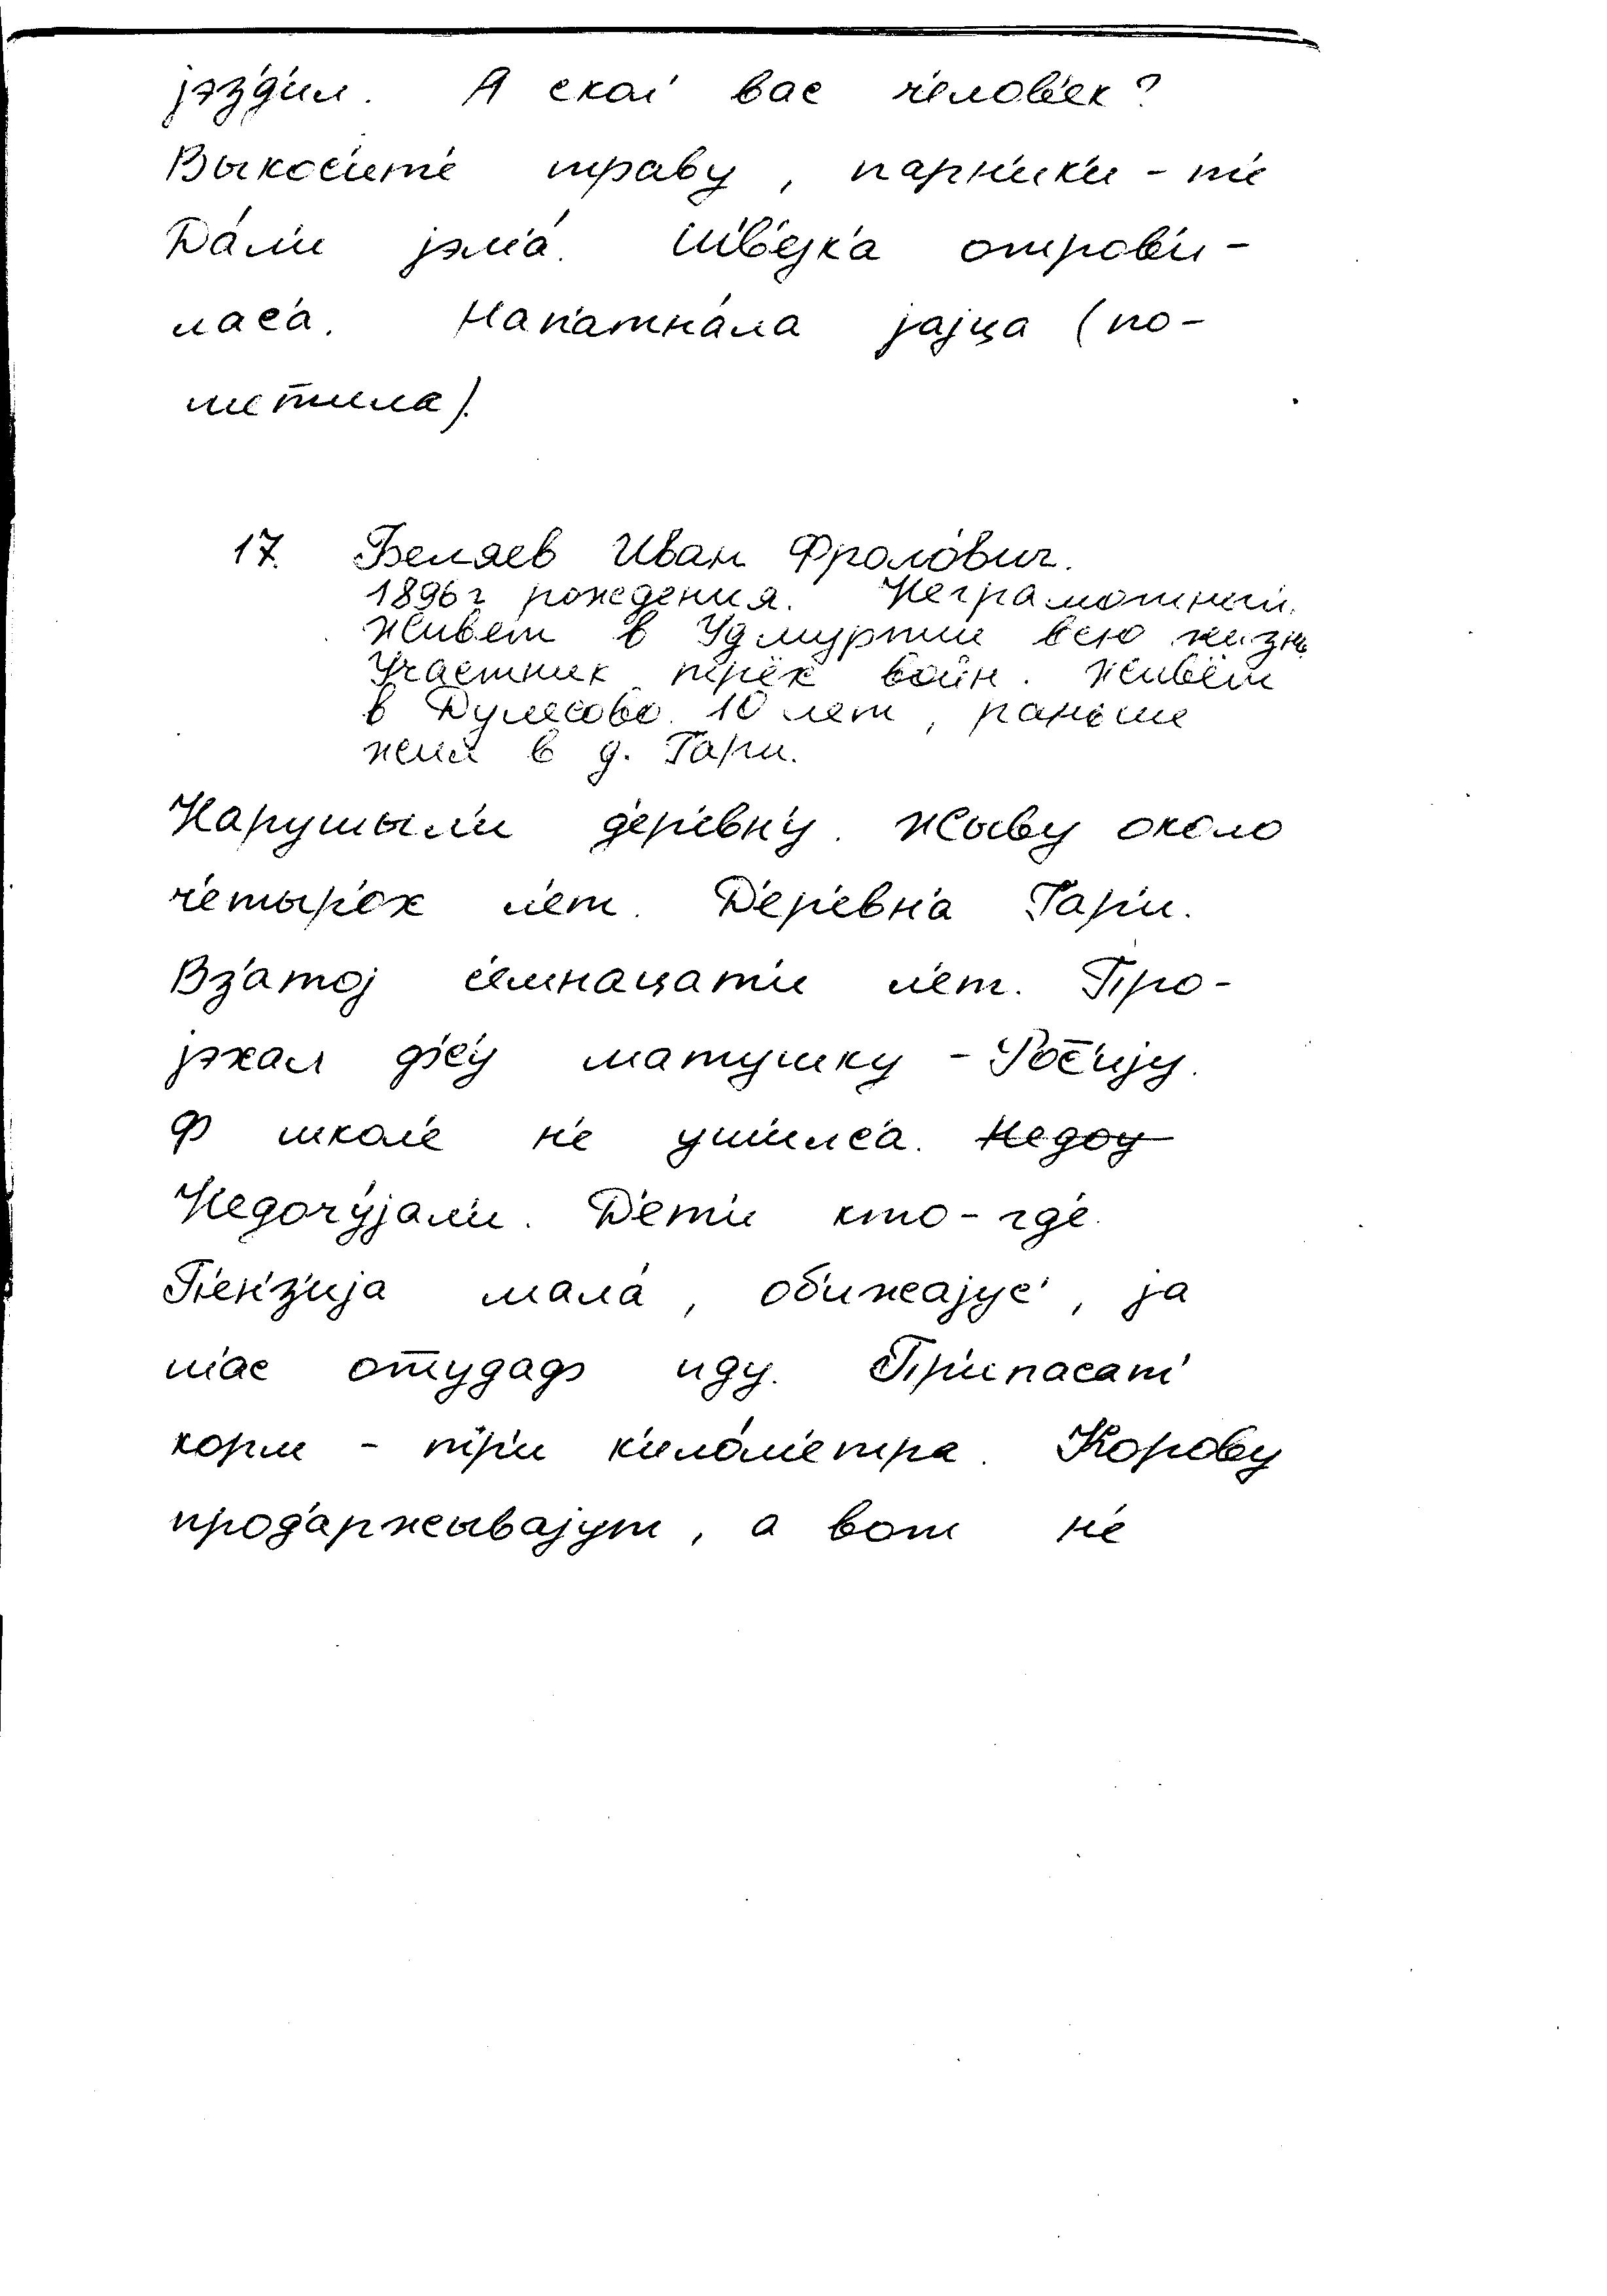 јэз'д'ил. А скол' вас ч'елов'ек?
Выкос'ит'е траву, парн'ик'и – т'е
Дал'и́ јэм'а́. Ш'в'е́јк'а отров'и-
лас'а. Нап'атна́ла јајца (по-
метила).
17. Беляев Иван Фроло́вич.
1896 г рождения. Неграмотный.
Живёт в Удмуртии всю жизнь
Участник трёх войн. Живёт
в Дулесово 10 лет, раньше
жил в д. Гари.
Нарушыл'и д'ер'евн'у. Жыву около
ч'етыр'ох л'ет. Д'ер'евн'а Гар'и.
Вз'атој с'емнацат'и л'ет. Про-
јэхал ф'с'у матушку – Рос̄'ију.
Ф школ'е н'е уш'илс'а. Недоу
Недоч'у́јал'и. Д'ет'и кто – гд'е.
П'ен'з'ија мала́, об'ижајус', ја
ш'ас от̄удаф иду. Пр'ипасат'
корм – тр'и к'ило́м'етра. Корову
прод'аржывајут, а вот н'е